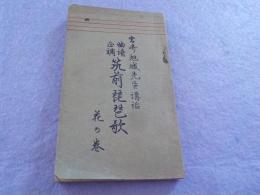 宮崎旭城先生講話
曲譜
正調
筑前琵琶歌
花の巻